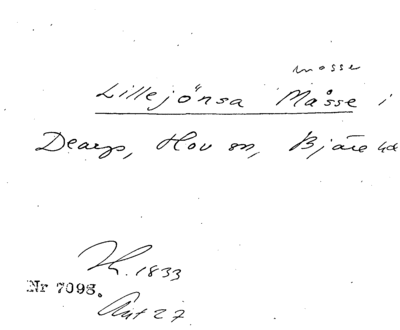 mosse
Lillejönsa Måsse i
Dearp, Hov sn, Bjäre hd
H. 1833
Nr 7098.
Ant 27